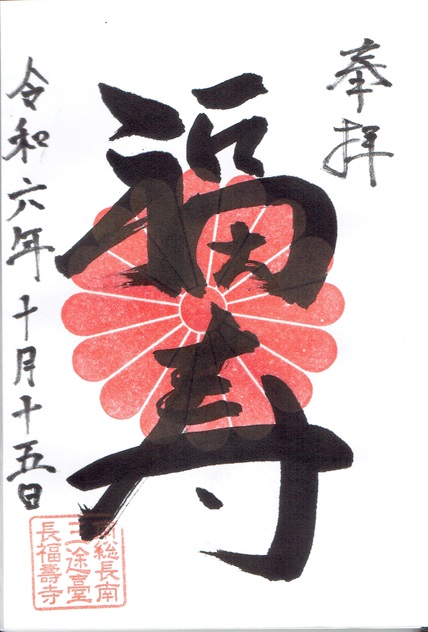 奉拝
福寿
令和六年十月十五日
総長南
三途臺
長福壽寺